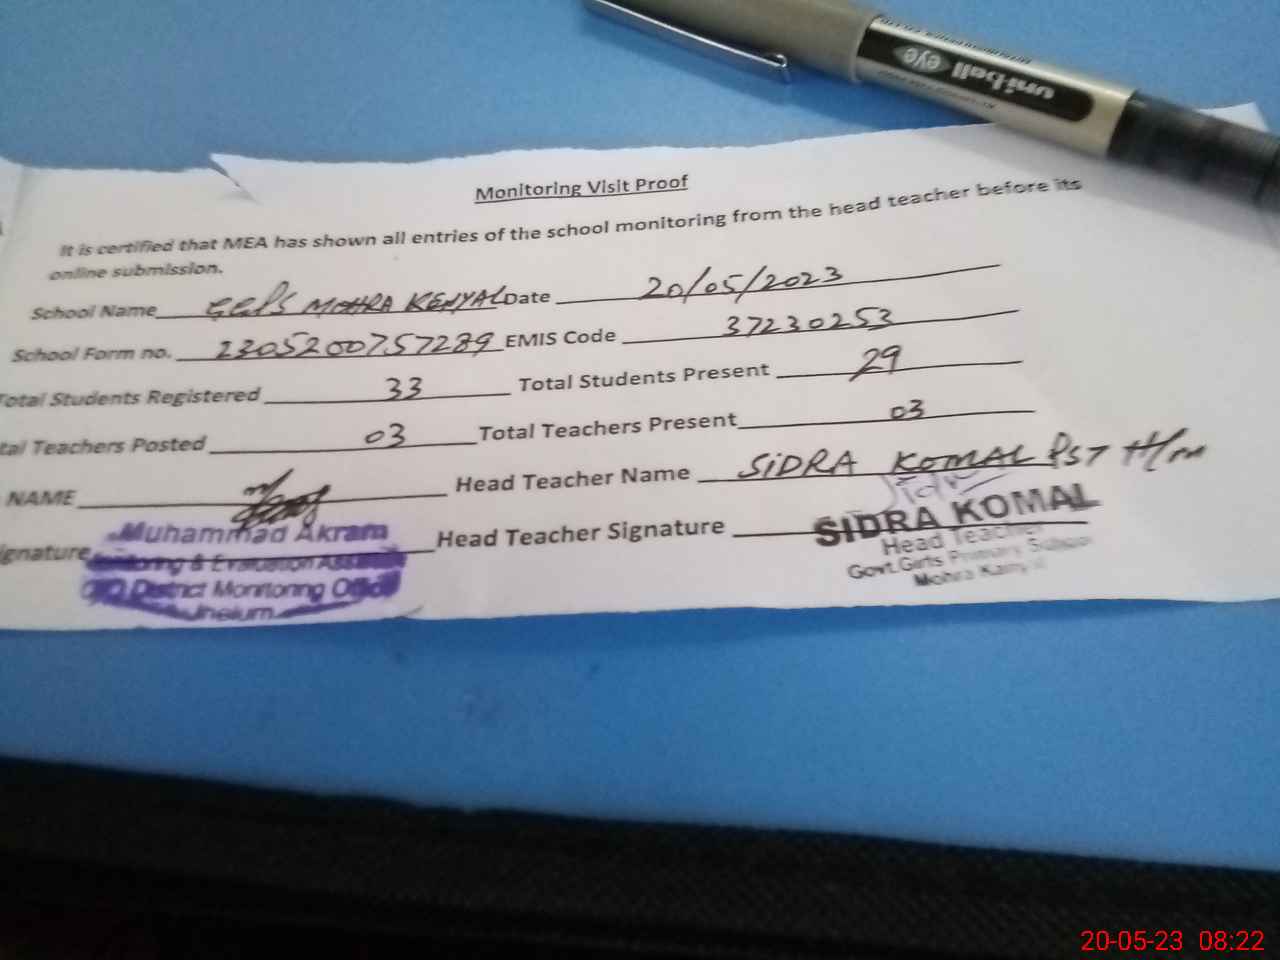 uni-ball eye
Monitoring Visit Proof
It is certified that MEA has shown all entries of the school monitoring from the head teacher before its
online submission.
School Name GGPS MOHRA KENYAL Date 20/05/2023
School Form no. 2305200757289 EMIS Code 37230253
Total Students Registered 33 Total Students Present 29
tal Teachers Posted 03 Total Teachers Present 03
NAME Head Teacher Name SIDRA KOMAL PST H/m
ignature Head Teacher Signature
Muhammad Akram
& Evaluation
District Monitoring
Jhelum
SIDRA KOMAL
Head Teacher
Govt.Girls Primary School
Mohra
20-05-23 08:22